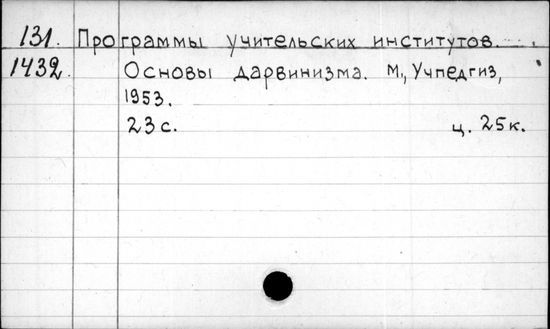 131. Программы учительских институтов.
1432. Основы дарвинизма. М., Учпедгиз,
1953.
23 с. ц. 25 к.